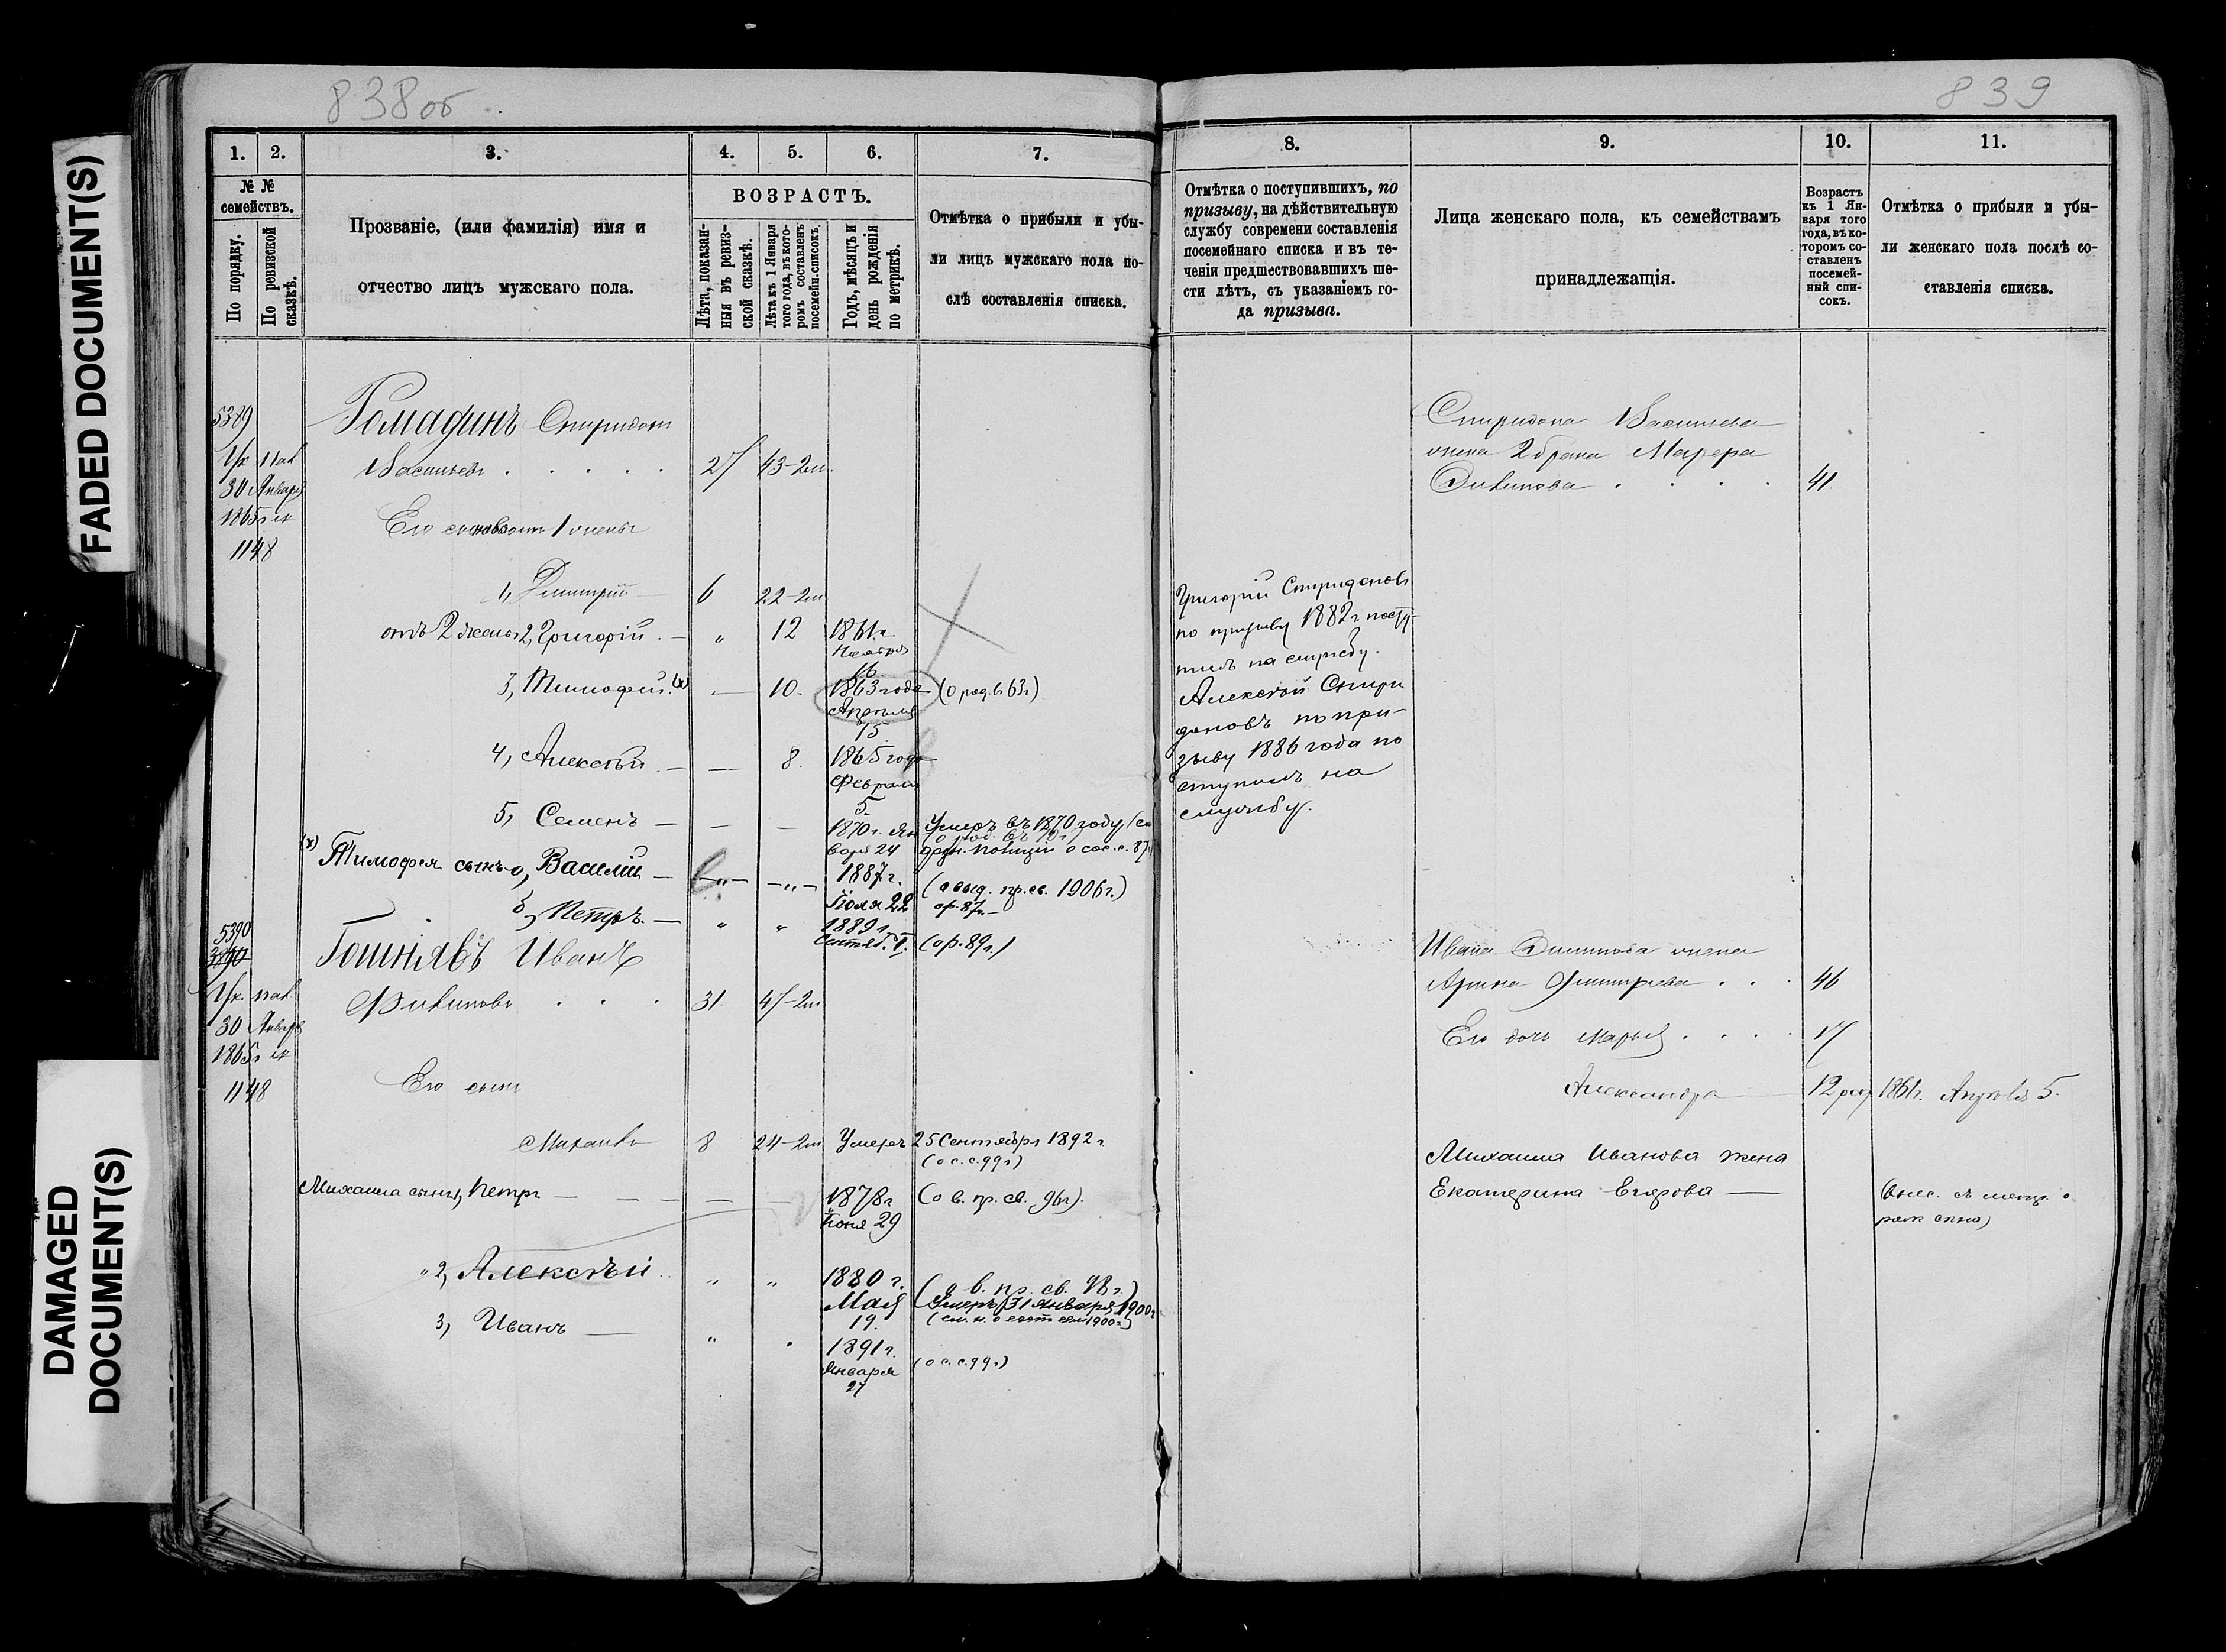 FADED DOCUMENT(S)
DAMAGED
DOCUMENT(S)
838об
1.
2.
3.
4.
5.
6.
7.
№ №
семействъ.
По порядку.
По ревизской
сказкѣ.
Прозваніе, (или фамилія) имя и
отчество лицъ мужскаго пола.
ВОЗРАСТЪ.
Лѣта, показан-
ныя въ ревиз-
ской сказкѣ.
Лѣта къ 1 Января
того года, въ кото-
ромъ составленъ
посемейн. списокъ.
Годъ, мѣсяцъ и
день рожденія
по метрикѣ.
Отмѣтка о прибыли и убы-
ли лицъ мужскаго пола по-
слѣ составленія списка.
5389
Ук Пал
30 Января
1865 г
1148
Гомадинъ Спиридонъ
Васильевъ . . . . . 27 43-2м.
Его сыновья отъ 1 жены
1, Дмитрій — 6 22-2м
отъ 2 жены 2, Григорій. — „ 12 1861 г.
Ноября
16
3, Тимофей. (х) — 10. 1863 года (о род. въ 63 г)
Апрѣля
15
4, Алексѣй — — 8. 1865 года
Февраля
5
5, Семенъ — — — 1870 г. Ян
варя 24
Умеръ въ 1870 году
о род. въ 70 г
(х) Тимофея сынъ а, Василій — — „ — — „ — 1887 г.
Іюля 22
(о выд. пр. св. 1906 г.)
ор. 87 г. —
б, Петръ. — „ „ 1889 г.
Сентяб. 1. (ор. 89 г.)
5390
3890
Ук. Пал
30 Января
1865 г
1148
Гошнявъ Иванъ
Филиповъ . . . 31 47-2м
Его сынъ
Михаилъ 8 24-2м Умеръ 25 Сентября 1892 г.
(о с. с. 99 г)
Михаила сынъ 1, Петръ — — — — — 1878 г (о в. пр. св. 96 г).
Іюня 29
„ 2, Алексѣй .. „ „ 1880 г. (о в. пр. св. 98 г.)
Мая
19.
Умеръ 31 Января 1900 г
3, Иванъ — „ . 1891 г.
Января (о с. с. 99 г)
27
839
8.
9.
10.
11.
Отмѣтка о поступившихъ, по
призыву, на дѣйствительную
службу современи составленія
посемейнаго списка и въ те-
ченіи предшествовавшихъ ше-
сти лѣтъ, съ указаніемъ го-
да призыва.
Лица женскаго пола, къ семействамъ
принадлежащія.
Возрастъ
къ 1 Ян-
варя того
года, въ ко-
торомъ со-
ставленъ
посемей-
ный спи-
сокъ.
Отмѣтка о прибыли и убы-
ли женскаго пола послѣ со-
ставленія списка.
Григорій Спиридоновъ
по призыву 1882 г посту-
пилъ на службу.
Алексѣй Спири
доновъ по при-
зыву 1886 года по
ступилъ на
службу.
Спиридона Васильева
жена 2 брака Марфа
Филипова . . . . 41
Ивана Филипова жена
Арина Дмитріева . . . 46
Его дочь Марья . . . . 17
Александра — 12 род 1861 г. Апрѣля 5.
Михаила Иванова жена
Екатерина Егорова —